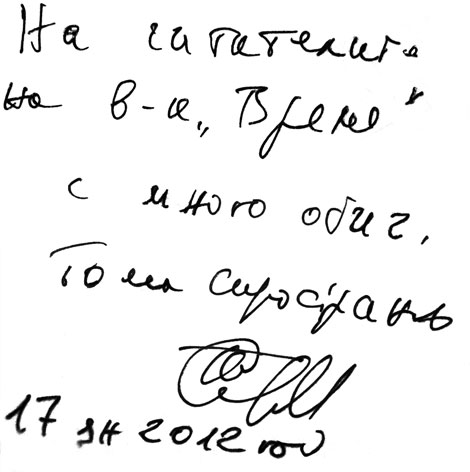 На читателите
на в-к „Време"
с много обич,
Тома Спространов
17 ян 2012 год